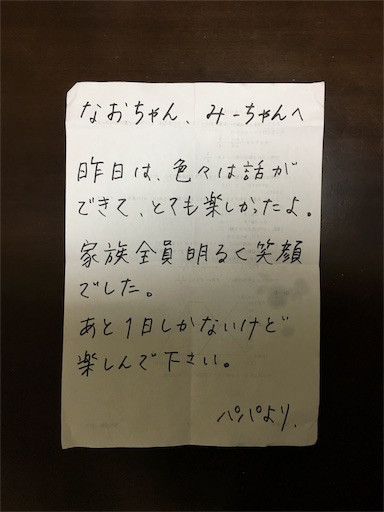 なおちゃん、みーちゃんへ
昨日は、色々は話が
できて、とても楽しかったよ。
家族全員明るく笑顔
でした。
あと1日しかないけど
楽しんで下さい。
パパより.